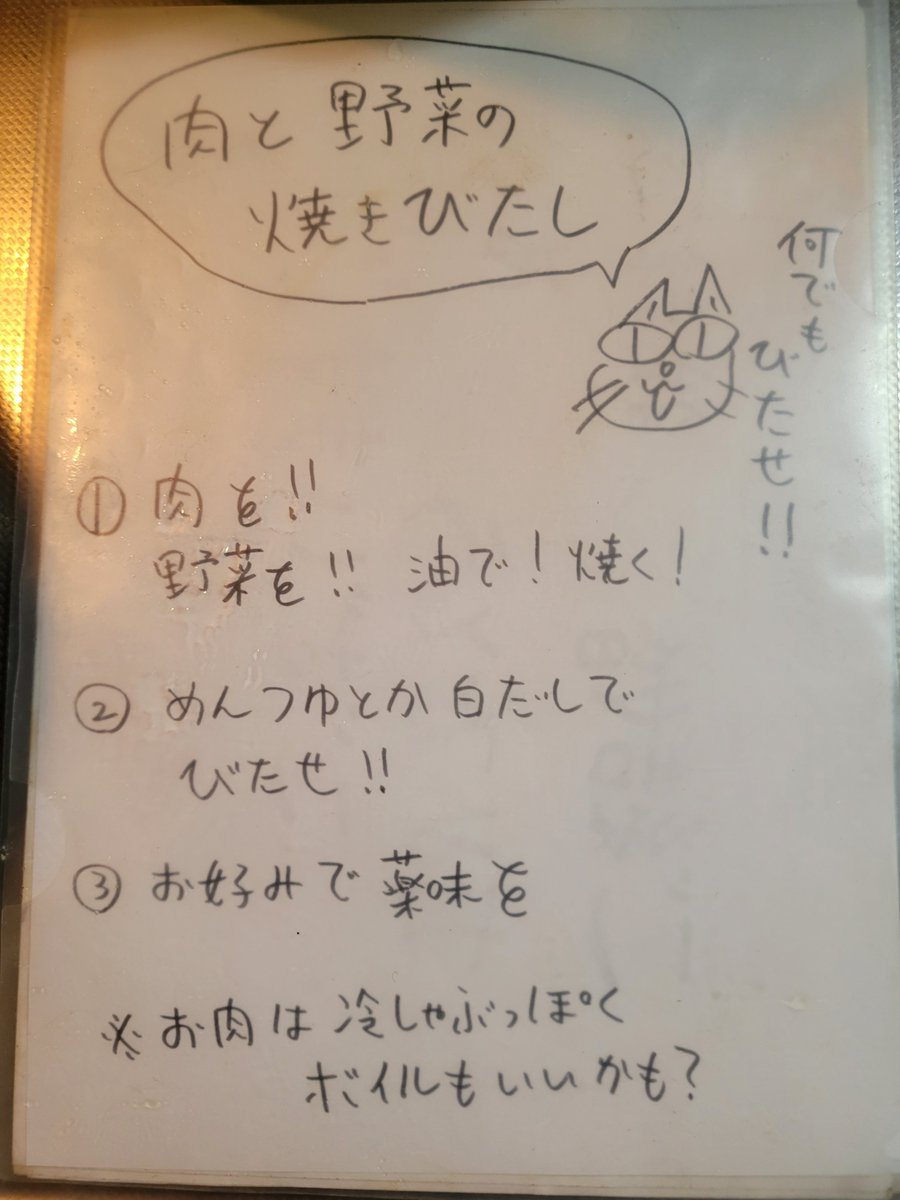 肉と野菜の
焼きびたし
何でも
びたせ!!
① 肉を!!
野菜を!! 油で! 焼く!
② めんつゆとか白だしで
びたせ!!
③ お好みで薬味を
※お肉は冷しゃぶっぽく
ボイルもいいかも?